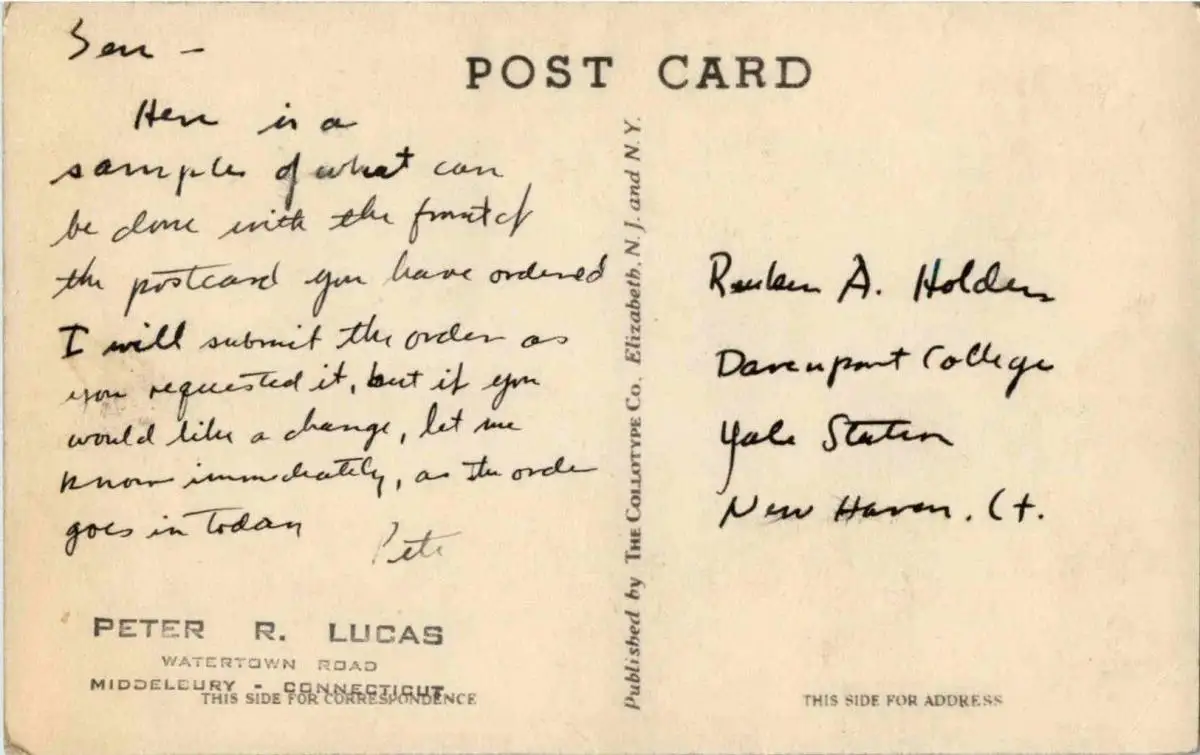 POST CARD
Here is a
samples of what can
be done with the front of
the postcard you have ordered
I will submit the order as
you requested it, but if you
would like a change, let me
know immediately, as the order
goes in today
Pete
PETER R. LUCAS
WATERTOWN ROAD
MIDDELBURY - CONNECTICUT
THIS SIDE FOR CORRESPONDENCE
Published by THE COLLOTYPE CO. Elizabeth, N. J. and N. Y.
Reuben A. Holden
Davenport College
Yale Station
New Haven, Ct.
THIS SIDE FOR ADDRESS